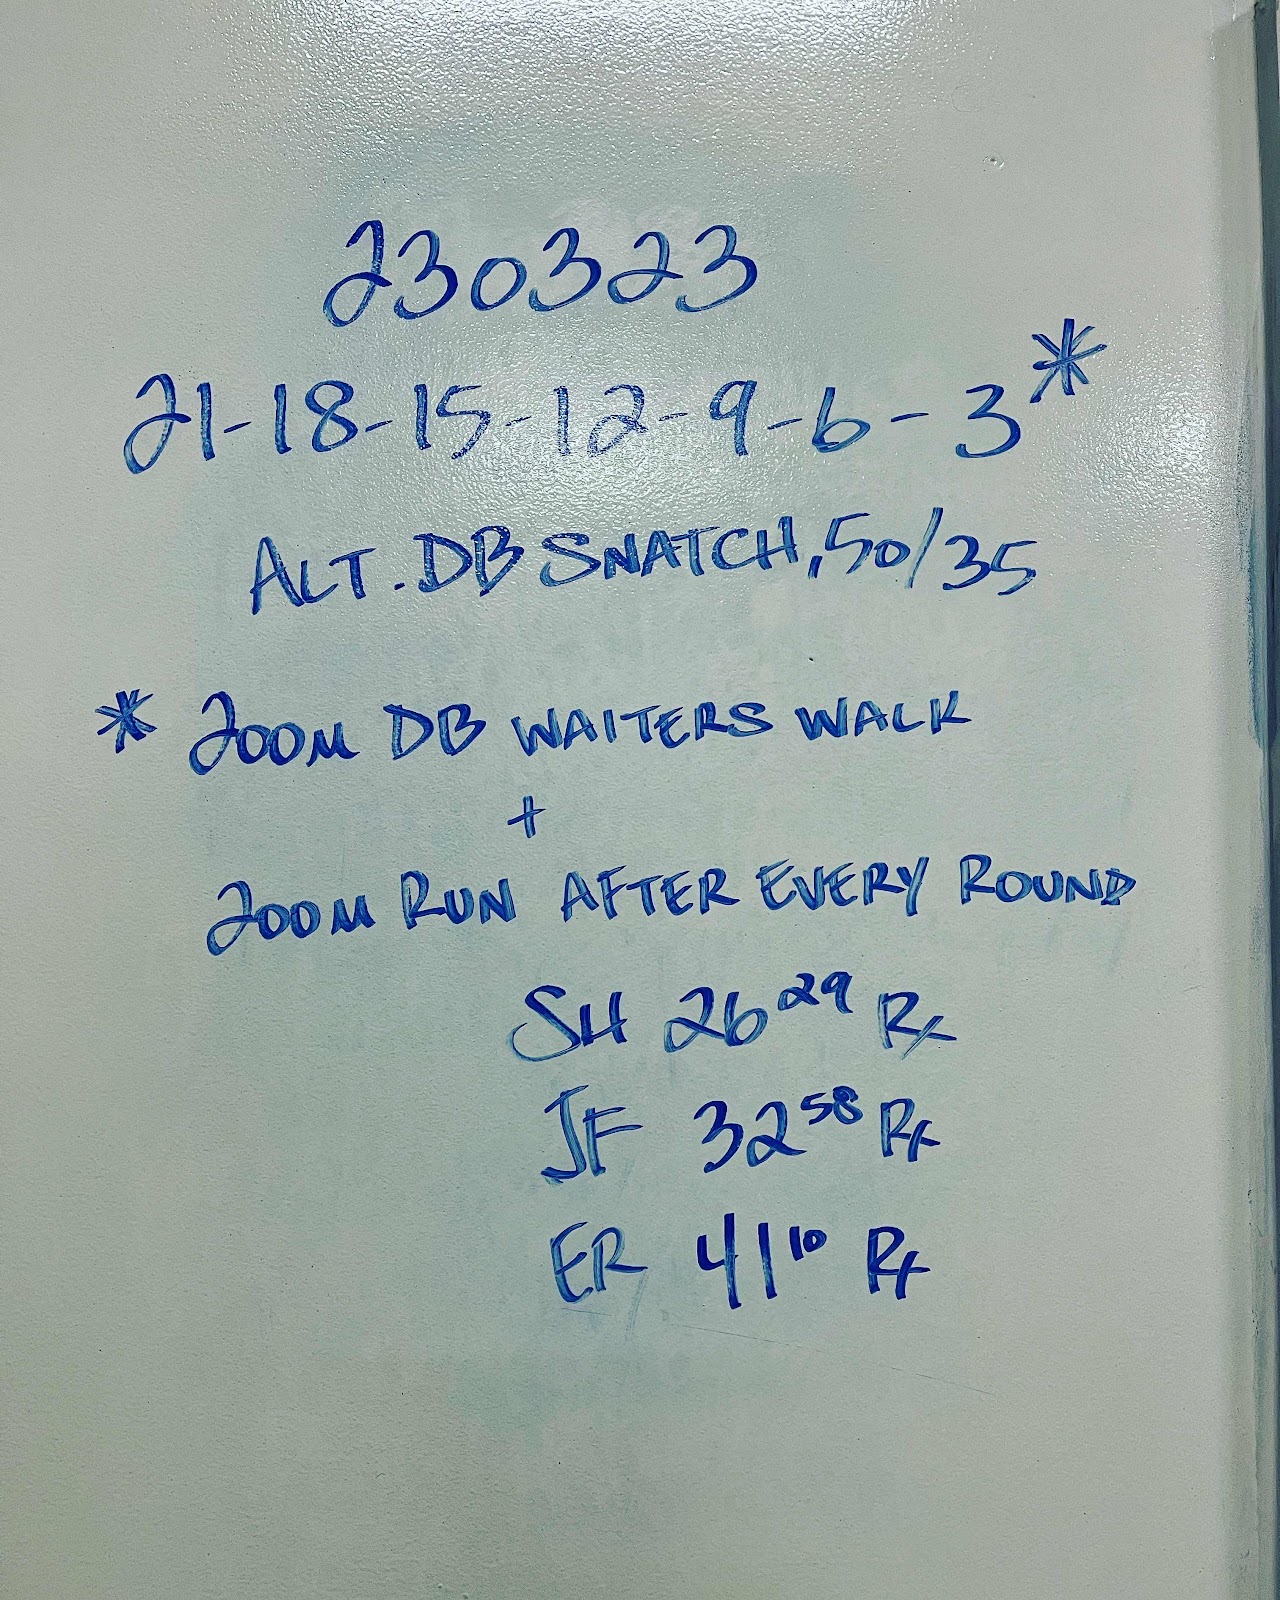 230323
21-18-15-12-9-6-3*
ALT. DB SNATCH, 50/35
* 200M DB WAITERS WALK
+
200M RUN AFTER EVERY ROUND
SH 26²⁹ Rx
JF 32⁵⁸ Rx
ER 41¹⁰ Rx